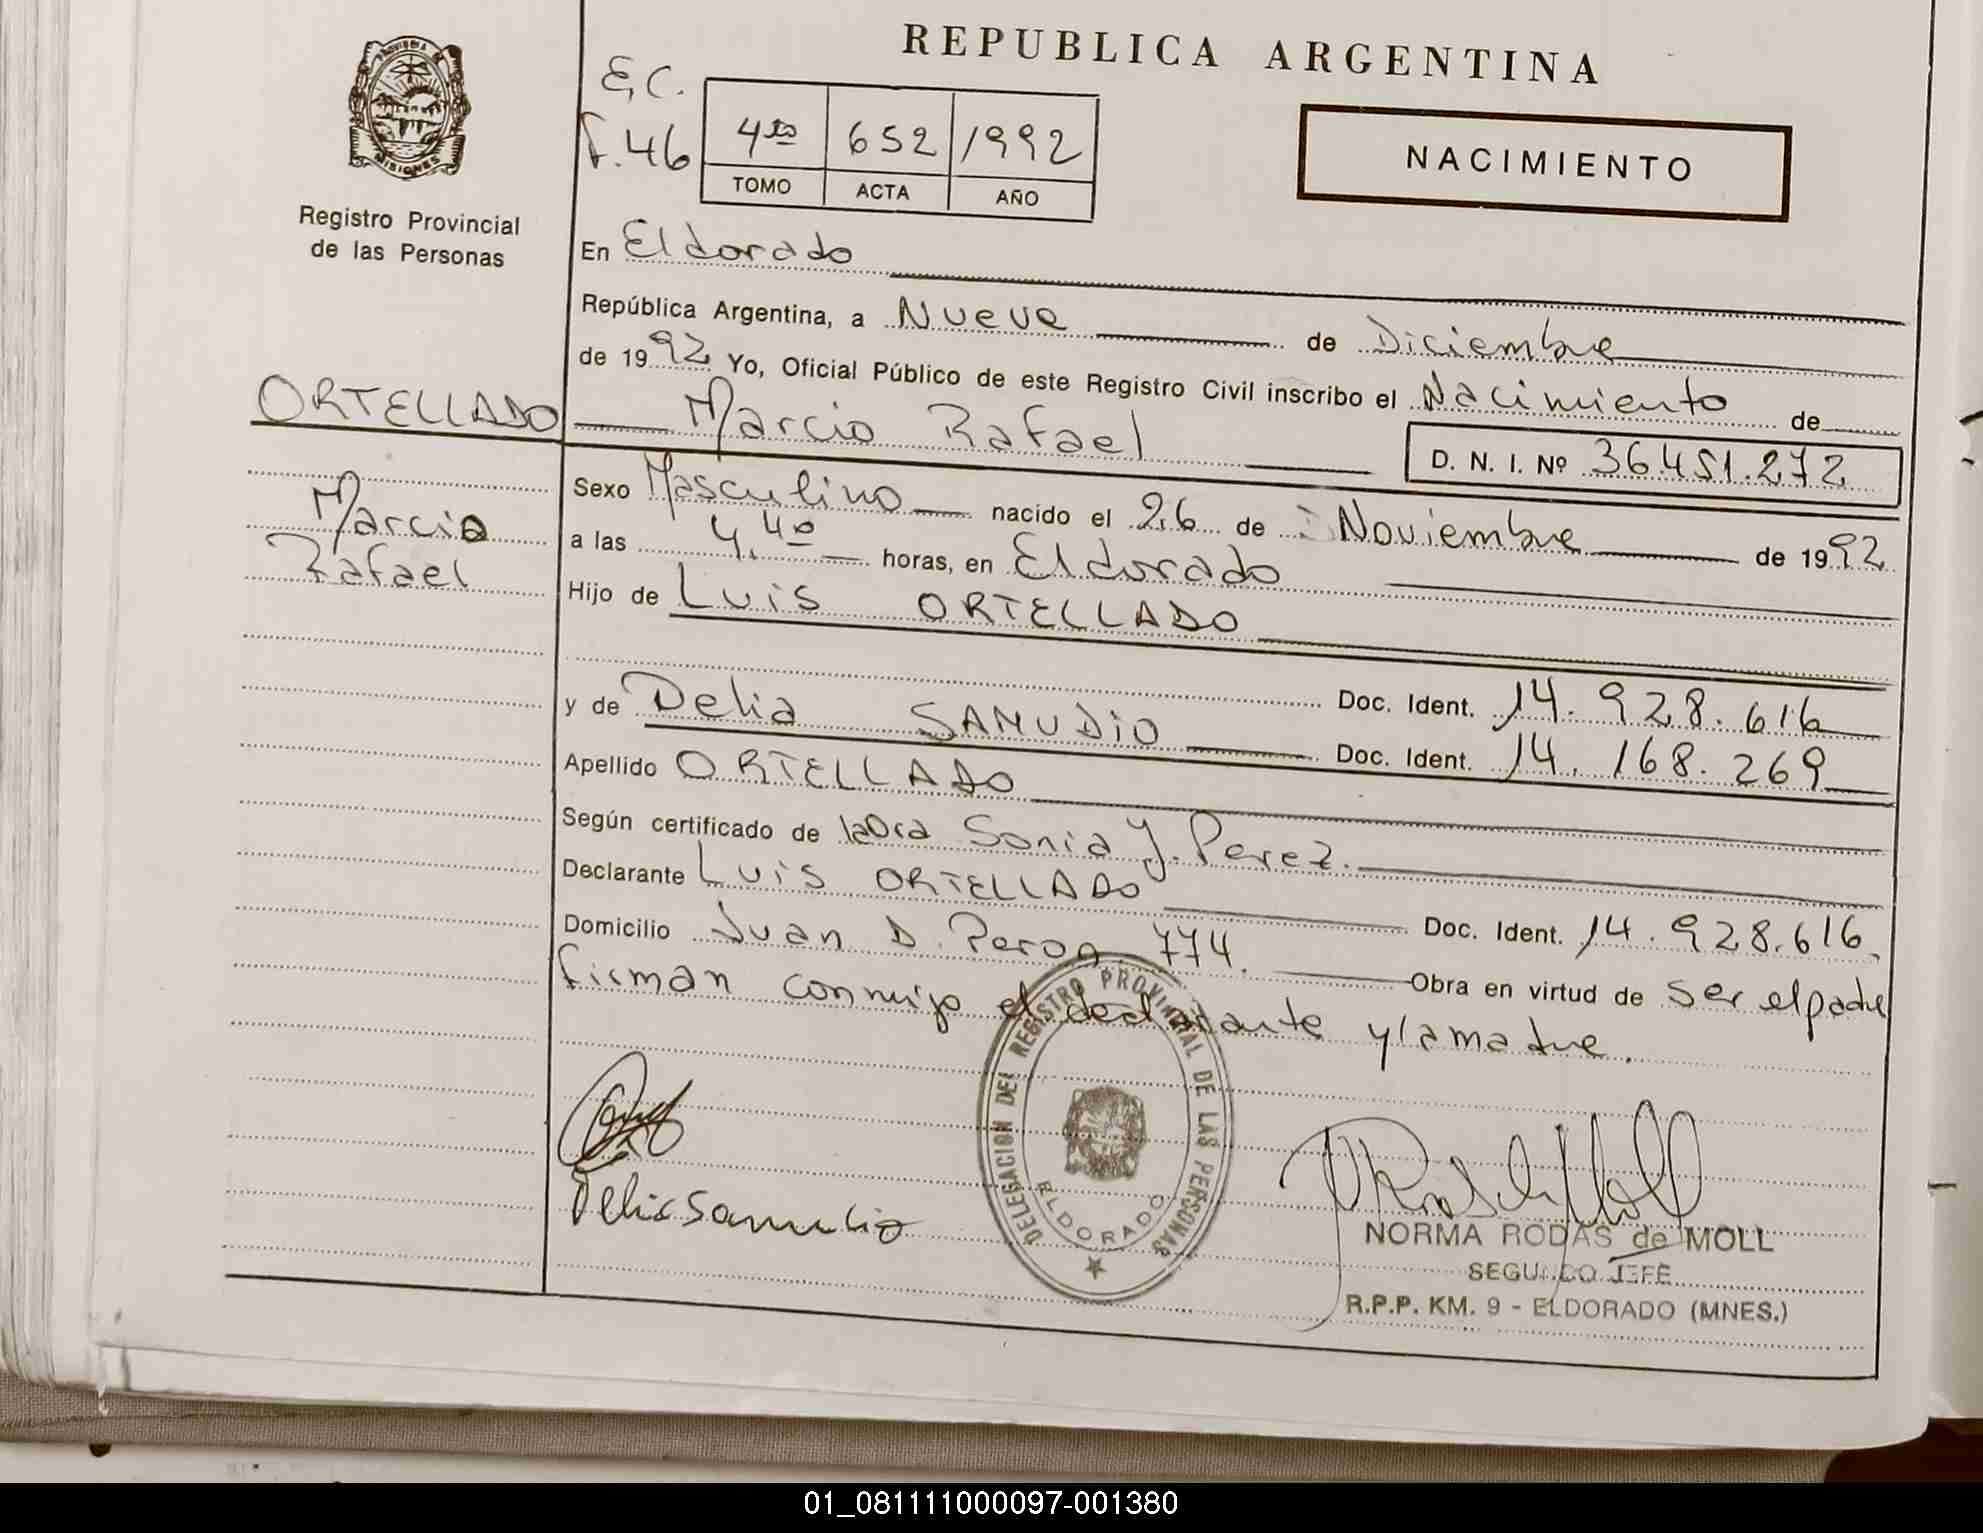 PROVINCIA DE
MISIONES
Registro Provincial
de las Personas
REPUBLICA ARGENTINA
E.C.
F.46
4to 652 1992
TOMO ACTA AÑO
NACIMIENTO
En Eldorado
República Argentina, a Nueve de Diciembre
de 1992 Yo, Oficial Público de este Registro Civil inscribo el Nacimiento de
Marcio Rafael
D. N. I. Nº 36.451.272
ORTELLADO
Marcio
Rafael
Sexo Masculino nacido el 26 de Noviembre de 1992
a las 4.40 horas, en Eldorado
Hijo de Luis ORTELLADO
Doc. Ident. 14.928.616
y de Delia SAMUDIO Doc. Ident. 14.168.269
Apellido ORTELLADO
Según certificado de la Dra Sonia J. Perez.
Declarante Luis ORTELLADO Doc. Ident. 14.928.616.
Domicilio Juan D. Peron 774. Obra en virtud de ser el padre
firman conmigo el declarante y la madre.
Delia Samudio
DELEGACION DEL REGISTRO PROVINCIAL DE LAS PERSONAS
ELDORADO
NORMA RODAS de MOLL
SEGUNDO JEFE
R.P.P. KM. 9 - ELDORADO (MNES.)
01_081111000097-001380